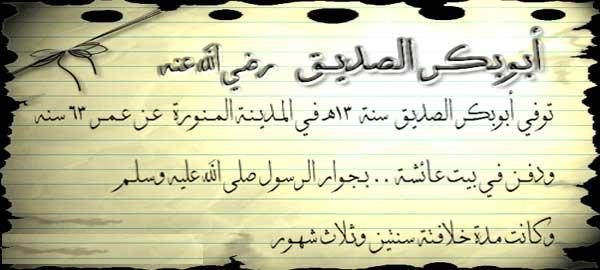 أبوبكر الصديق رضي الله عنه
توفي أبوبكر الصديق سنة ١٣هـ في المدينة المنورة عن عمر ٦٣ سنه
ودفن في بيت عائشة .. بجوار الرسول صلى الله عليه وسلم
وكانت مدة خلافته سنتين وثلاث شهور